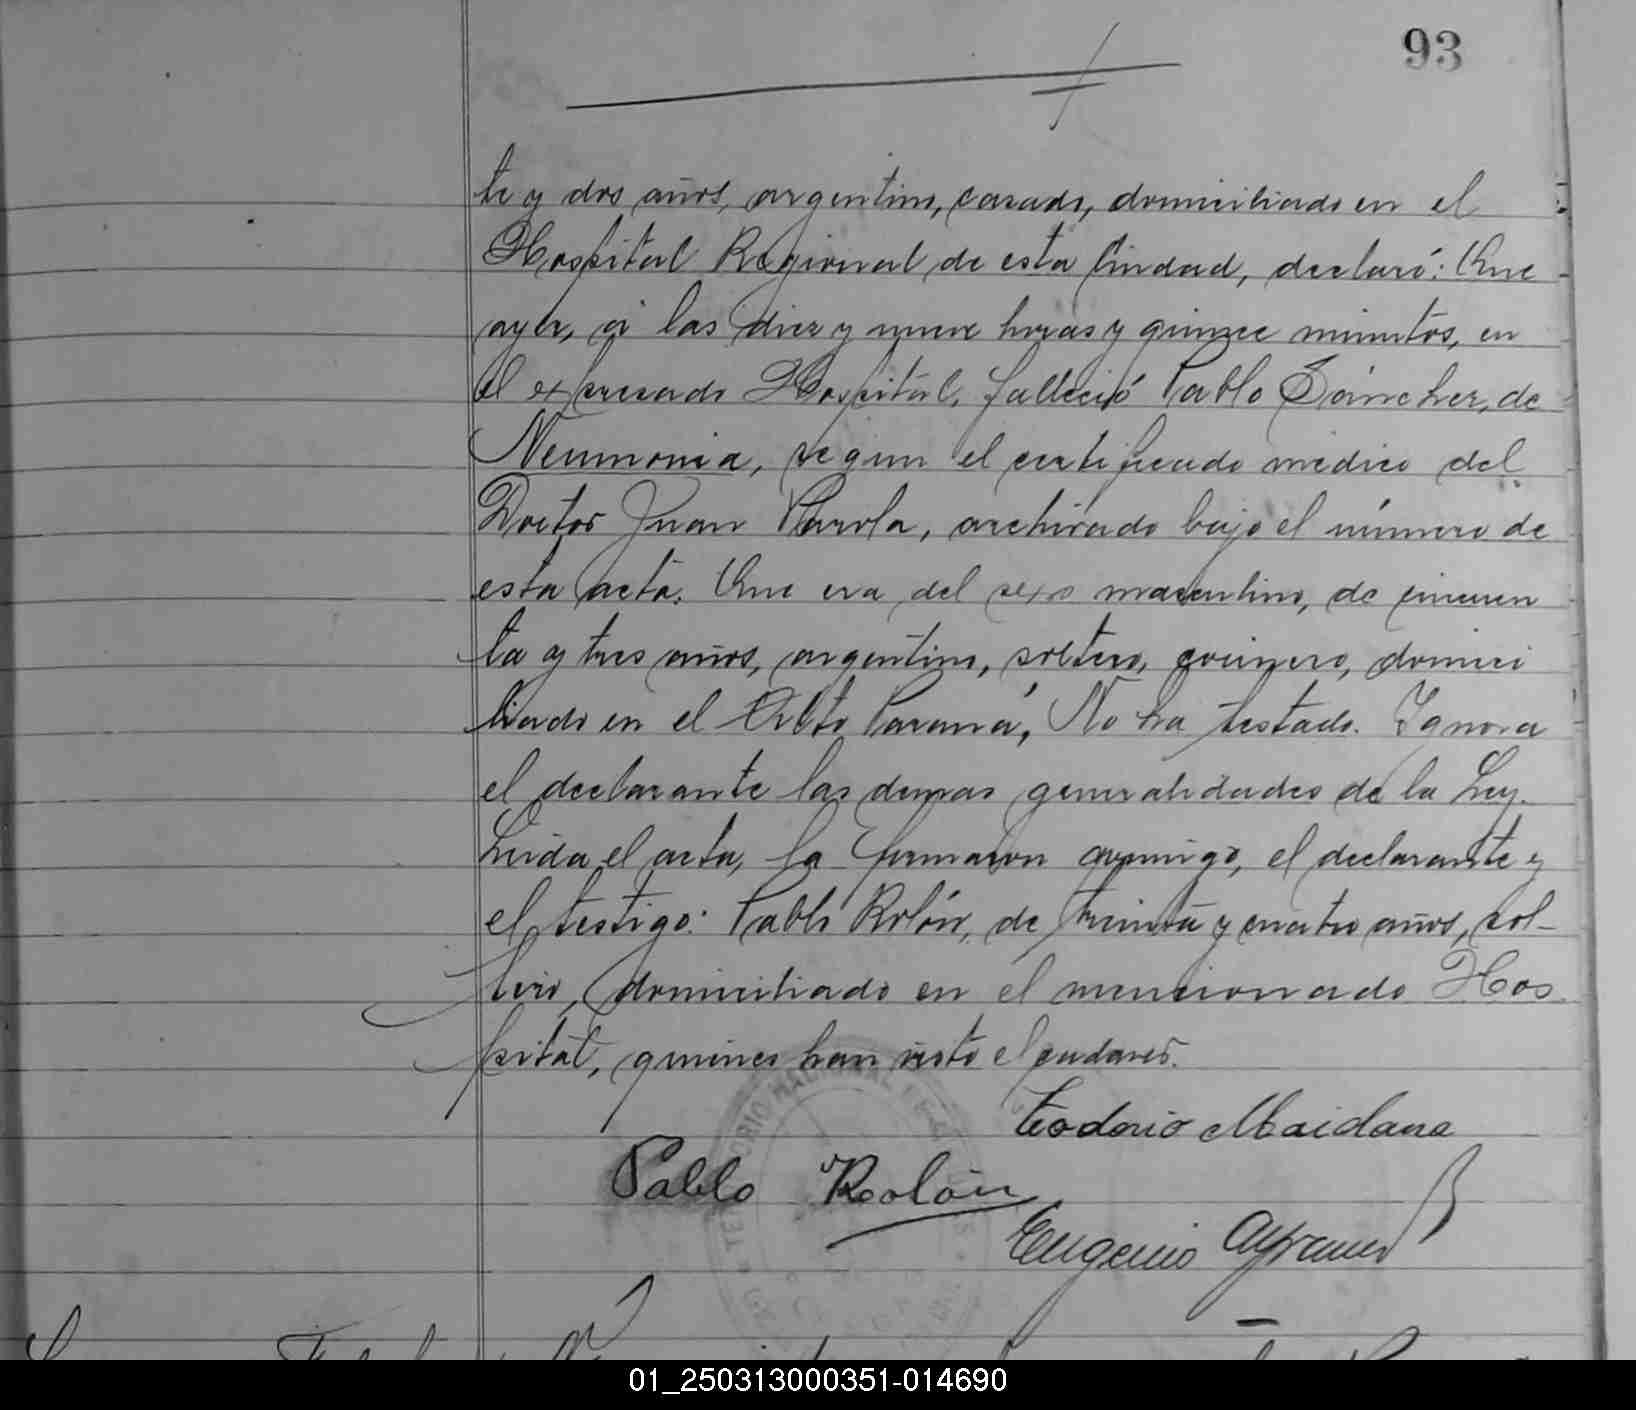 93
te y dos años, argentino, casado, domiciliado en el
Hospital Regional de esta Ciudad, declaró: Que
ayer, á las diez y nueve horas y quince minutos, en
el expresado Hospital, falleció Pablo Sánchez, de
Neumonia, segun el certificado médico del
Doctor Juan Parola, archivado bajo el número de
esta acta. Que era del sexo masculino, de cincuen
ta y tres años, argentino, soltero, domici
liado en el Alto Paraná, No ha testado. Ignora
el declarante las demas generalidades de la Ley.
Leida el acta, la firmaron conmigo, el declarante y
el testigo: Pablo Rolón, de treinta y cuatro años, sol-
tero, domiciliado en el mencionado Hos
pital, quienes han visto el cadaver.
Teodorio Maidana
Pablo Rolón
Eugenio
TERRITORIO NACIONAL
01_250313000351-014690